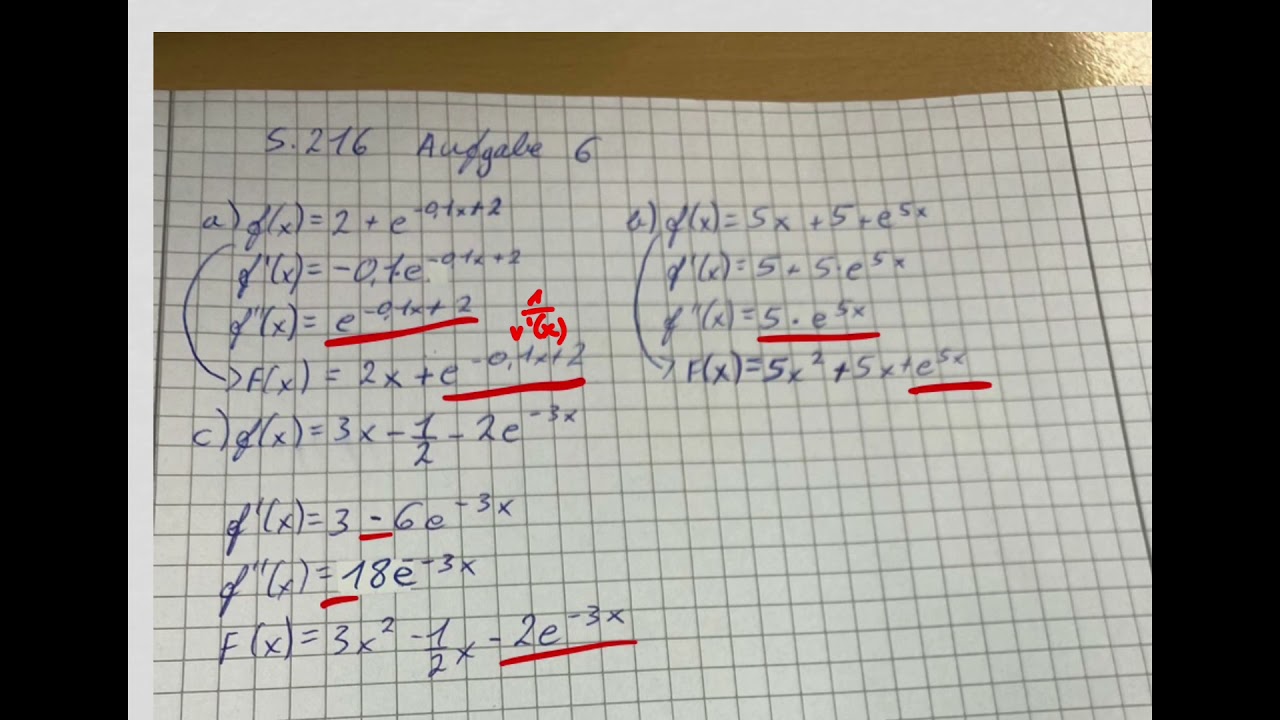 S.216 Aufgabe 6
a) f(x) = 2 + e^-0,1x+2
f'(x) = -0,1·e^-0,1x+2
f''(x) = e^-0,1x+2
1/v'(x)
> F(x) = 2x + e^-0,1x+2
b) f(x) = 5x + 5 + e^5x
f'(x) = 5 + 5·e^5x
f''(x) = 5 · e^5x
> F(x) = 5x² + 5x + e^5x
c) f(x) = 3x - 1/2 - 2e^-3x
f'(x) = 3 - 6e^-3x
f''(x) = 18e^-3x
F(x) = 3x² - 1/2 x - 2e^-3x